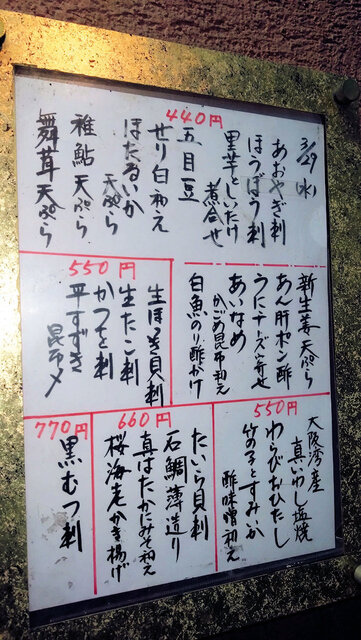 3/29(水)
440円
あおやぎ刺
ほうぼう刺
里芋としいたけ
煮合せ
五目豆
せり白和え
ほたるいか
天ぷら
稚鮎天ぷら
舞茸天ぷら
新生姜天ぷら
あん肝ポン酢
うにチーズ寄せ
あいなめ
かごめ昆布和え
白魚のり酢かけ
550円
生ほっき貝刺
生たこ刺
かつを刺
平すずき
昆布〆
550円
大阪湾産
真いわし塩焼
わらびおひたし
竹の子とすみいか
酢味噌和え
660円
たいら貝刺
石鯛薄造り
真はたかにみそ和え
桜海老かき揚げ
770円
黒むつ刺